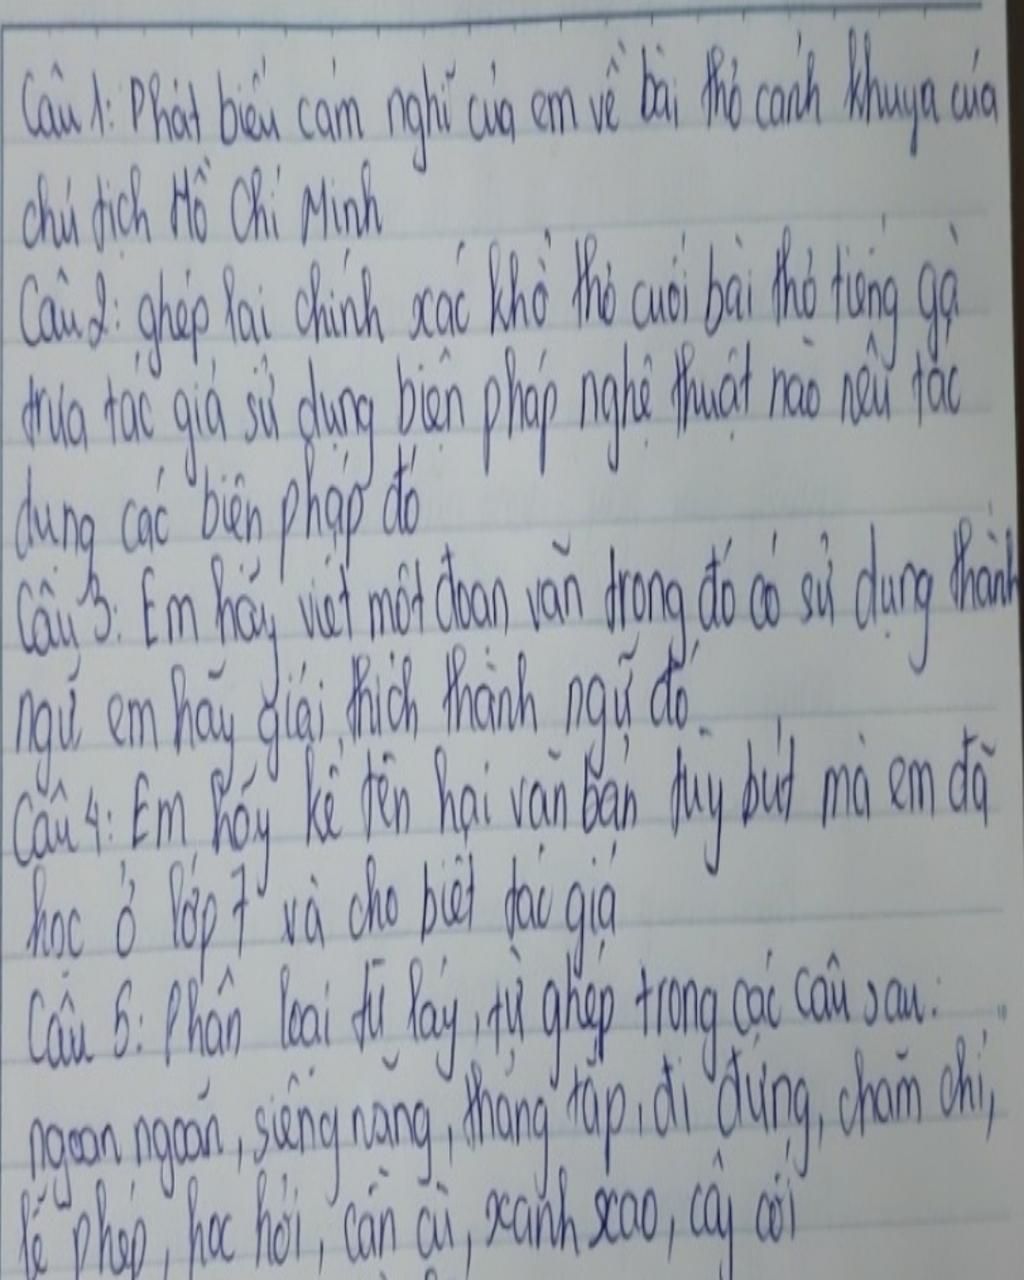 Câu 1: Phát biểu cảm nghĩ của em về bài thơ cảnh khuya của
chủ tịch Hồ Chí Minh
Câu 2: ghép lại chính xác khổ thơ cuối bài thơ tiếng gà
trưa tác giả sử dụng biện pháp nghệ thuật nào nêu tác
dụng các biện pháp đó
Câu 3: Em hãy viết một đoạn văn trong đó có sử dụng thành
ngữ em hãy giải thích thành ngữ đó
Câu 4: Em hãy kể tên hai văn bản tùy bút mà em đã
học ở lớp 7 và cho biết tác giả
Câu 5: Phân loại từ láy, từ ghép trong các câu sau:
ngoan ngoãn, siêng năng, tháng tấp, đi đứng, chăm chỉ,
lễ phép, học hỏi, cần cù, xanh xao, cây cối